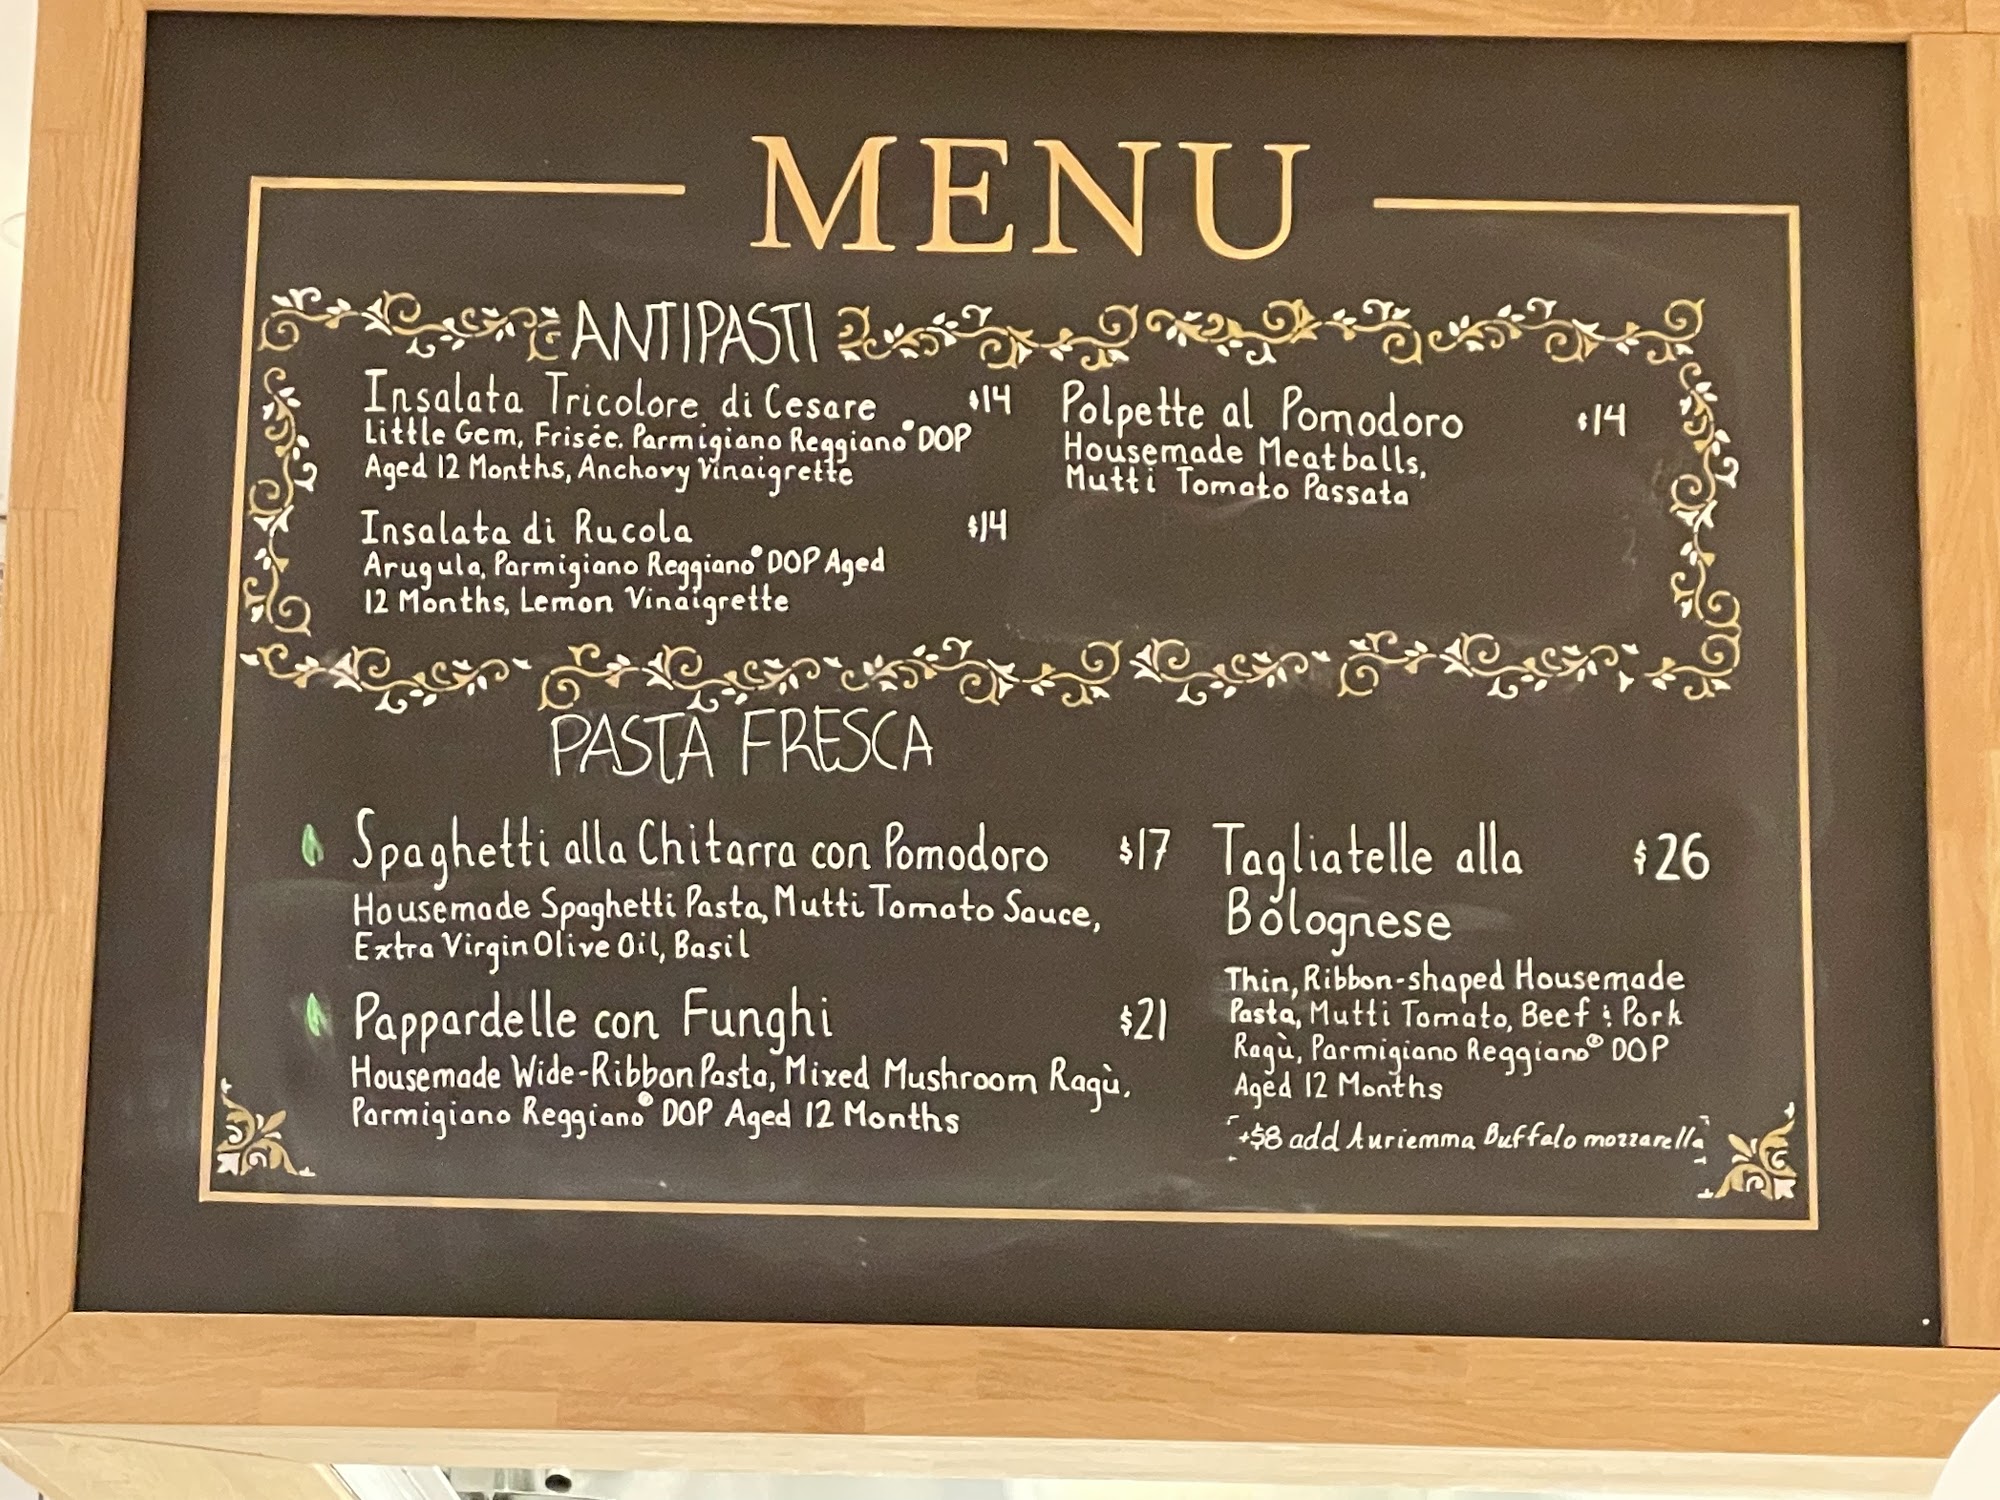 MENU
ANTIPASTI
Insalata Tricolore di Cesare $14
Little Gem, Frisée, Parmigiano Reggiano® DOP
Aged 12 Months, Anchovy Vinaigrette
Insalata di Rucola $14
Arugula, Parmigiano Reggiano® DOP Aged
12 Months, Lemon Vinaigrette
Polpette al Pomodoro $14
Housemade Meatballs,
Mutti Tomato Passata
PASTA FRESCA
Spaghetti alla Chitarra con Pomodoro $17
Housemade Spaghetti Pasta, Mutti Tomato Sauce,
Extra Virgin Olive Oil, Basil
Pappardelle con Funghi $21
Housemade Wide-Ribbon Pasta, Mixed Mushroom Ragù,
Parmigiano Reggiano® DOP Aged 12 Months
Tagliatelle alla $26
Bolognese
Thin, Ribbon-shaped Housemade
Pasta, Mutti Tomato, Beef & Pork
Ragù, Parmigiano Reggiano® DOP
Aged 12 Months
+$8 add Auriemma Buffalo mozzarella